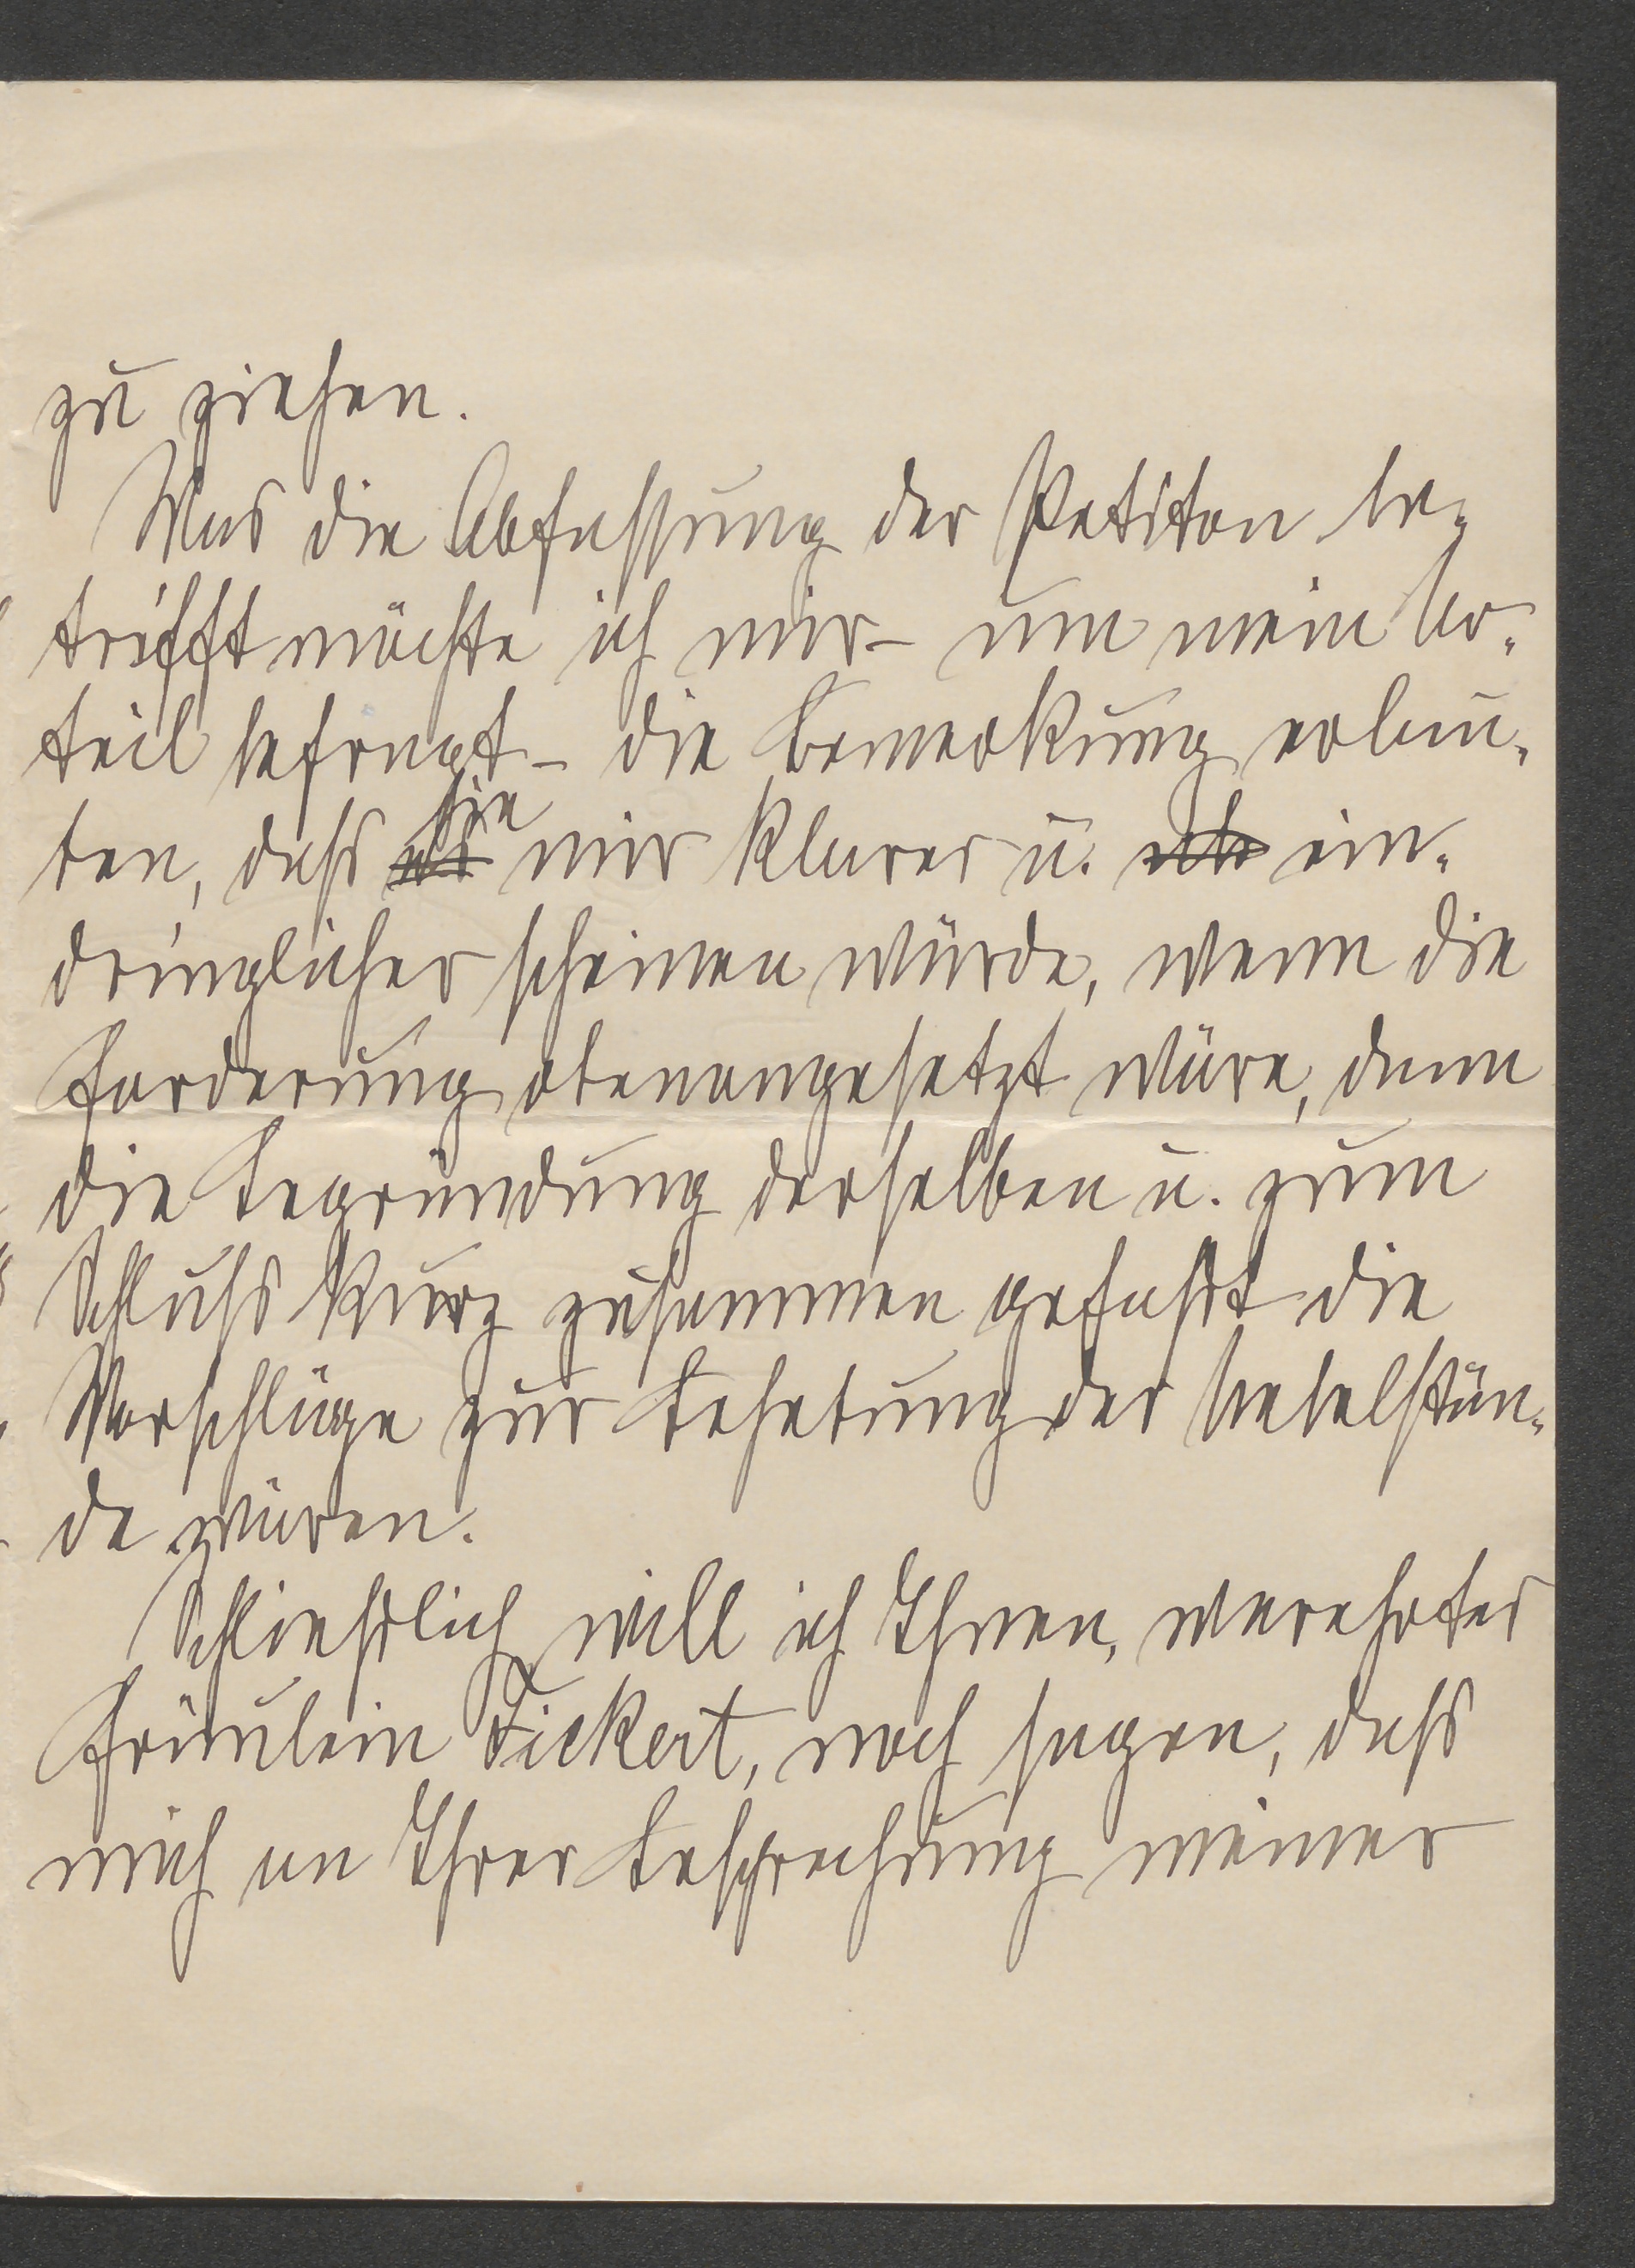 zu ziehen.
Was die Abfassung der Petiton be-
trifft möchte ich mir – um mein Ur-
teil befragt – die Bemerkung erlau-
ten, dass sie mir klarer u. ein-
dringlicher scheinen würde, wenn die
Forderung obenangesetzt wäre, dann
die Begründung derselben u. zum
Schluss kurz zusammen gefasst die
Vorschläge zur Behebung der Uebelstän-
de wären.
Schliesslich will ich Ihnen, verehrtes
Fräulein Fickert, noch sagen, dass
mich an Ihrer Besprechung meines